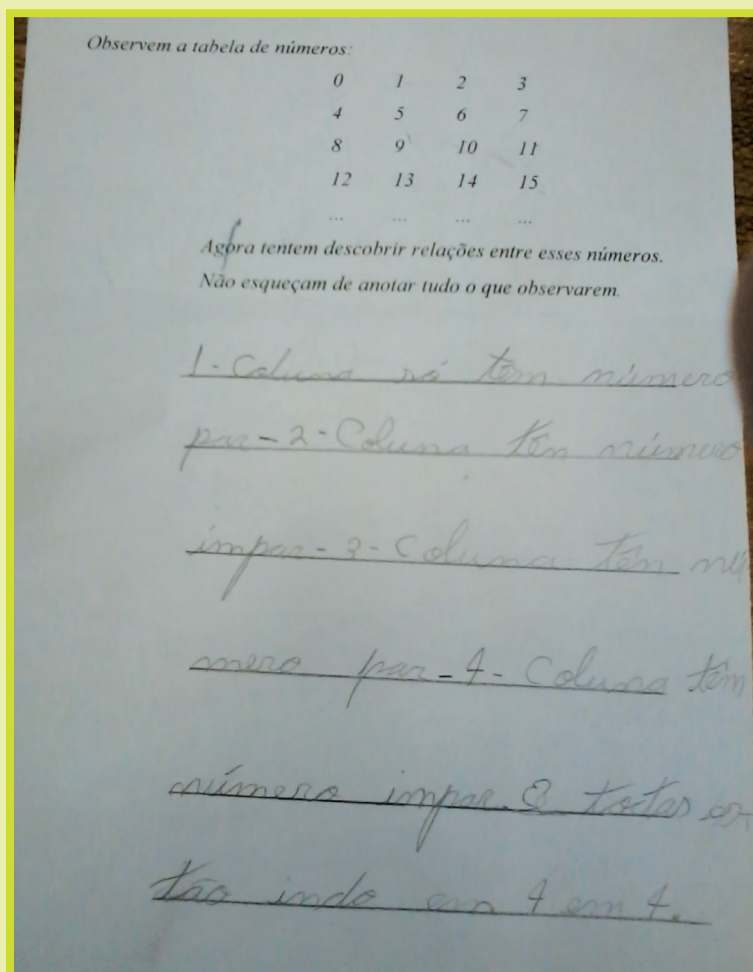 Observem a tabela de números:
0 1 2 3
4 5 6 7
8 9 10 11
12 13 14 15
... ... ... ...
Agora tentem descobrir relações entre esses números.
Não esqueçam de anotar tudo o que observarem.
1-Coluna só têm número
par-2-Coluna têm número
impar-3-Coluna têm nú
mero par-4-Coluna têm
número impar. E totas es
tão indo em 4 em 4.